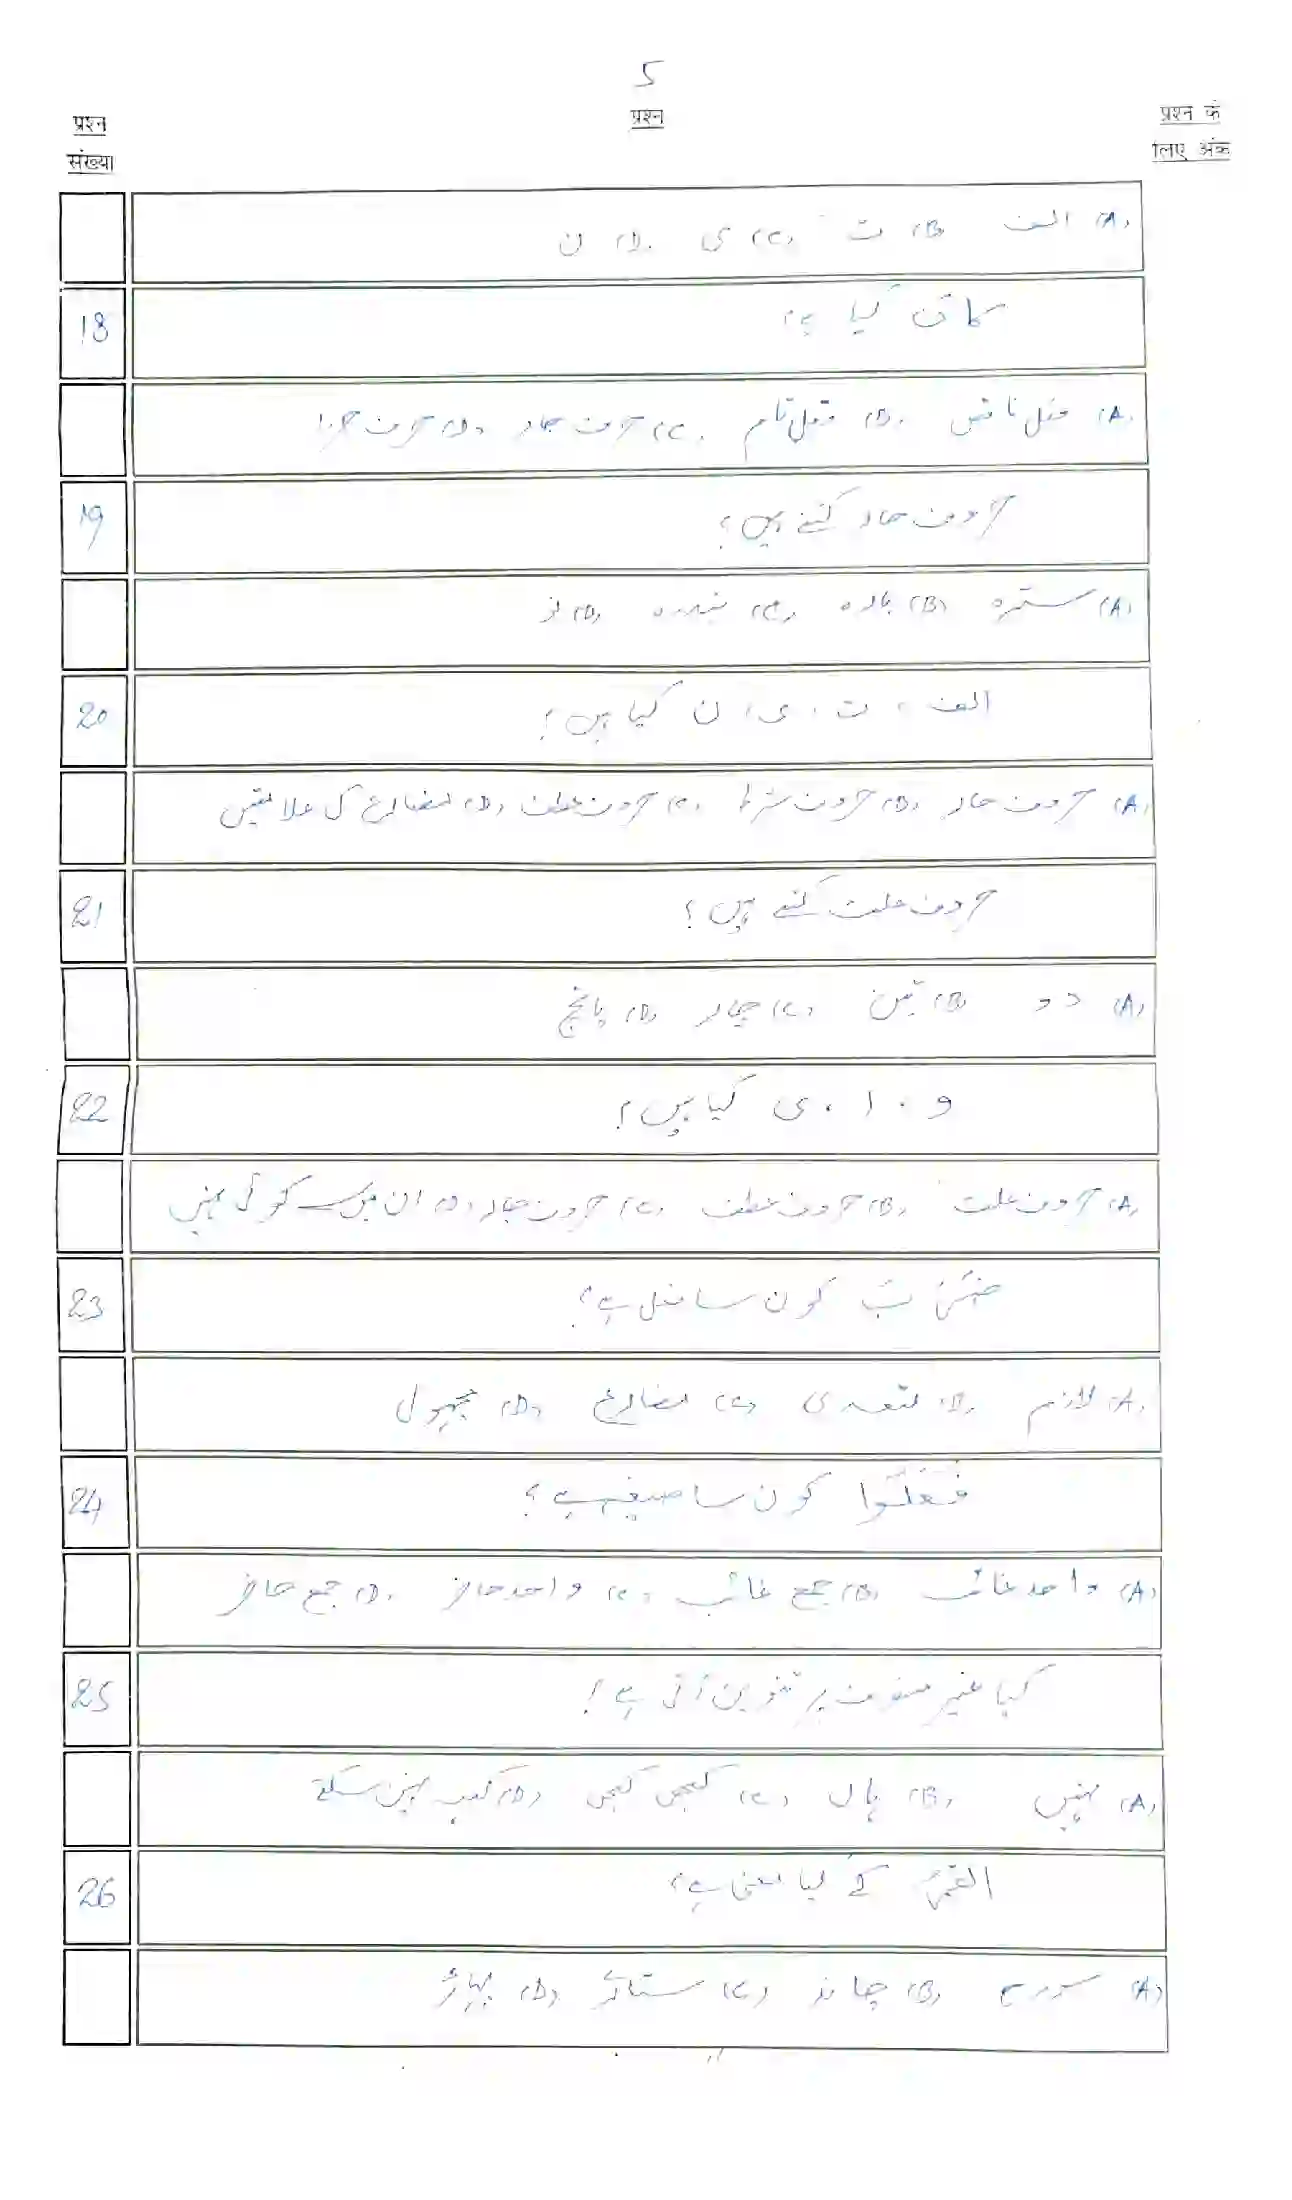 5
प्रश्न संख्या
प्रश्न
प्रश्न के लिए अंक
(A) الف (B) ت (C) ی (D) ن
18 کان کیا ہے؟
(A) فعل ناقص (B) فعل تام (C) حرف جار (D) حرف جزا
19 حروف جار کتنے ہیں؟
(A) سترہ (B) بارہ (C) پندرہ (D) نو
20 الف ، ت ، ی ، ن کیا ہیں؟
(A) حروف جار (B) حروف شرط (C) حروف عطف (D) مضارع کی علامتیں
21 حروف علت کتنے ہیں؟
(A) دو (B) تین (C) چار (D) پانچ
22 و ، ا ، ی کیا ہیں؟
(A) حروف علت (B) حروف عطف (C) حروف جار (D) ان میں سے کوئی نہیں
23 ضَرَبَ کون سا فعل ہے؟
(A) لازم (B) متعدی (C) مضارع (D) مجہول
24 فَعَلُوا کون سا صیغہ ہے؟
(A) واحد غائب (B) جمع غائب (C) واحد حاضر (D) جمع حاضر
25 کیا غیر منصرف پر تنوین آتی ہے؟
(A) نہیں (B) ہاں (C) کبھی کبھی (D) کہہ نہیں سکتے
26 القمرُ کے کیا معنی ہے؟
(A) سورج (B) چاند (C) ستارے (D) پہاڑ